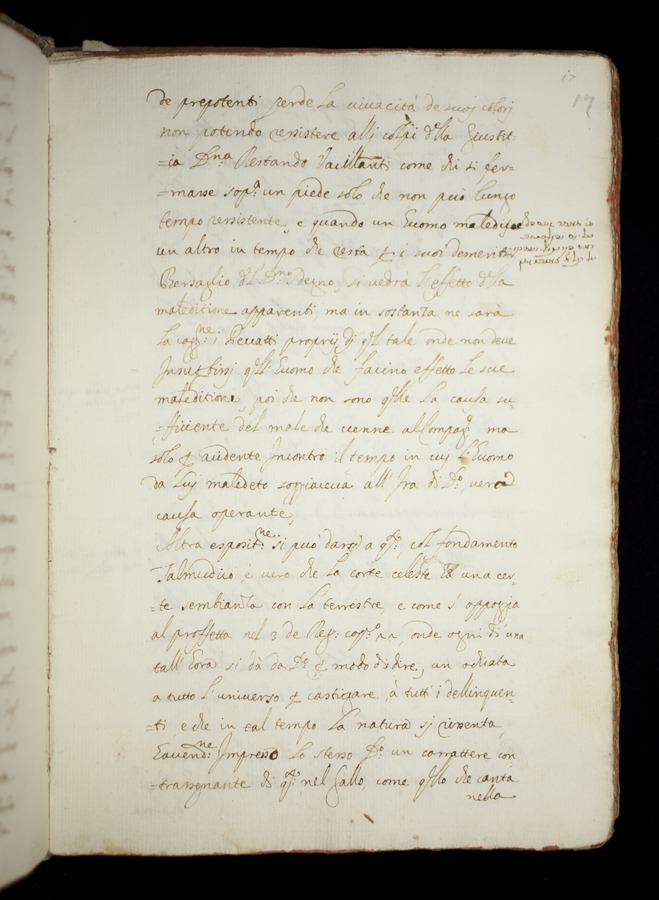 17
17
de prepotenti perde la vivacità de suoj colori
non potendo resistere allj colpi d͞lla Giustit
=ia D:na Restando Vacillanti come chi si fer=
=masse sop:a un piede solo che non può lungo
tempo ressistente, e quando un huomo maledisce
un altro in tempo che resta p i suoi demeriti
Bersaglio d͞l D:no degno, si vedrà l'effetto d͞lla
maleditione apparenti ma in sostanza ne sarà
la cag:ne i Pecatti proprij dj q͞l tale onde non deve
q͞ll'huomo che facino effetto le sue
maleditione, poi che non sono q͞lle la causa su=
=fficiente del male che venne al Compag:o ma
solo p accidente Incontrò il tempo in cuj l'huomo
da Luj maledeto sogiaceva all'Ira di D:o vera
causa operante,
Altra esposit:ne si può darsj a q͞to col fondamento
Talmudico è vero che la corte celeste una cer=
=te sembianza con la terrestre, e come s'appoggia
al proffetta nel 3 de Reg: cap:o 22, onde ogni dì una
tall'hora si dà da D:o p modo di dire, un ochiata
a tutto l'universo p castigare à tutti i dellinquen=
=ti, e che in tal tempo la natura sj rissenta,
havend:ne Impresso lo stesso D:o un carrattere con=
=trasegnante di q͞to nel Gallo, come q͞llo che canta
nella